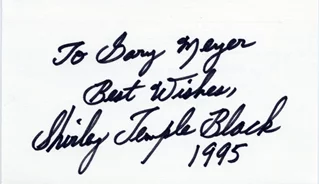 To Gary Meyer
Best Wishes,
Shirley Temple Black
1995